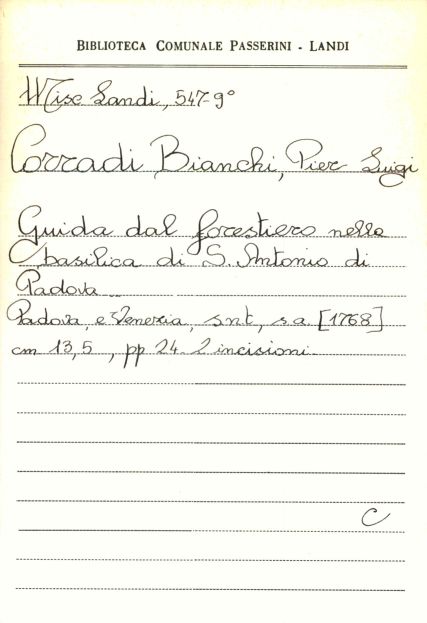 BIBLIOTECA COMUNALE PASSERINI - LANDI
Misc Landi, 547-9°
Corradi Bianchi, Pier Luigi
Guida dal forestiero nella
basilica di S. Antonio di
Padova
Padova, e Venezia, s.n.t, s.a. [1768]
cm 13,5, pp 24. 2 incisioni
C